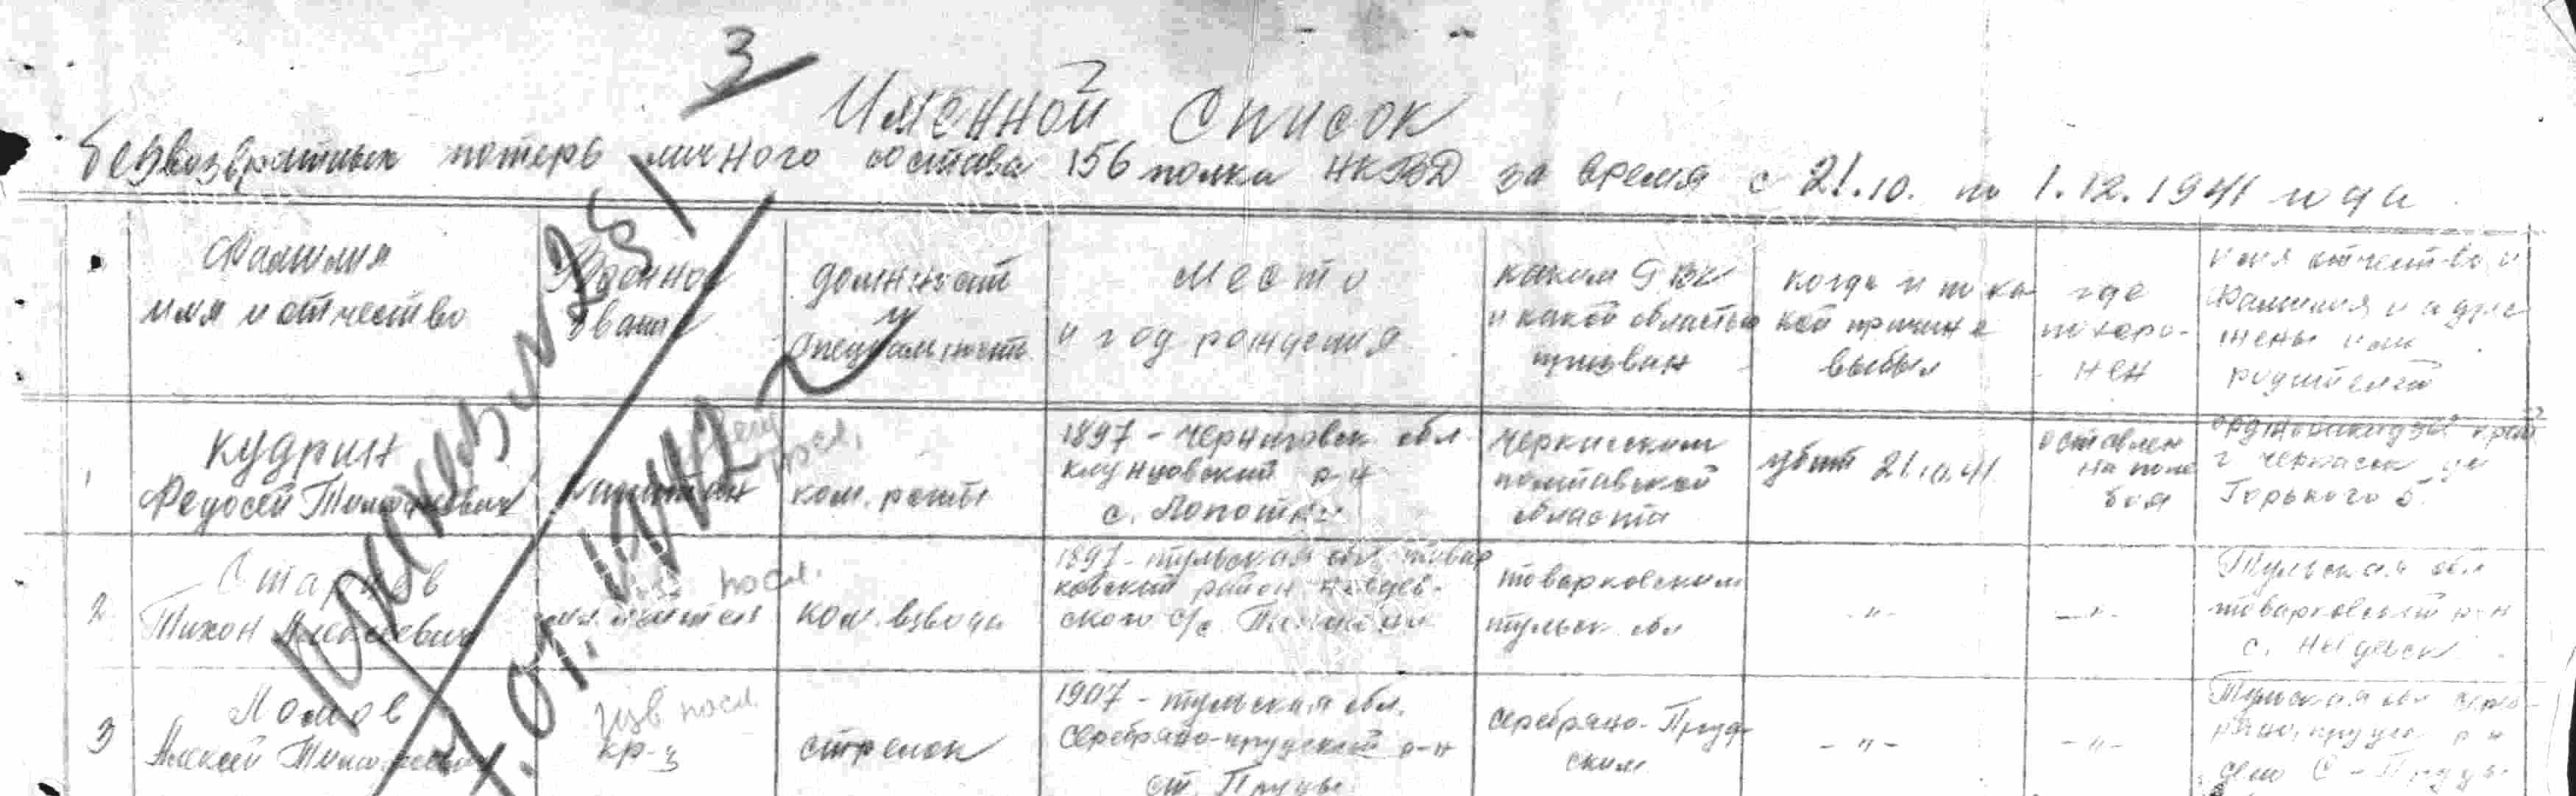 3
Именной Список
безвозвратных потерь личного состава 156 полка НКВД за время с 21.10. по 1.12.1941 года
Фамилия
имя и отчество
Военное
звание
должность
и
специальность
Место
и год рождения
каким РВК
и какой областью
призван
когда и по ка-
кой причине
выбыл
где
похоро-
нен
имя отчество и
фамилия и адрес
жены или
родителей
1
Кудрин
Федосей Тимофеевич
капитан
посл.
ком. роты
1897 - Черниговск обл.
Клунцовский р-н
с. Лопотни
Черкасским
полтавской
области
убит 21.10.41
оставлен
на поле
боя
Орджоникидзев край
г. Черкасск ул
Горького 5
2
Тихон Алексеевич
посл.
ком. взвода
1897 - тульская обл товар
ковский район
ского с/с
товарковским
тульск. обл
-"-
-"-
Тульская обл
товарковский р-н
с.
3
Ломов
Алексей Тимофеевич
изв посл.
кр-ц
стрелок
1907 - тульская обл.
серебряно-прудский р-н
ст. Пруды
серебряно-Пруд-
ским
-"-
-"-
Тульская обл сереб-
ряно прудс р-н
С-Пруды